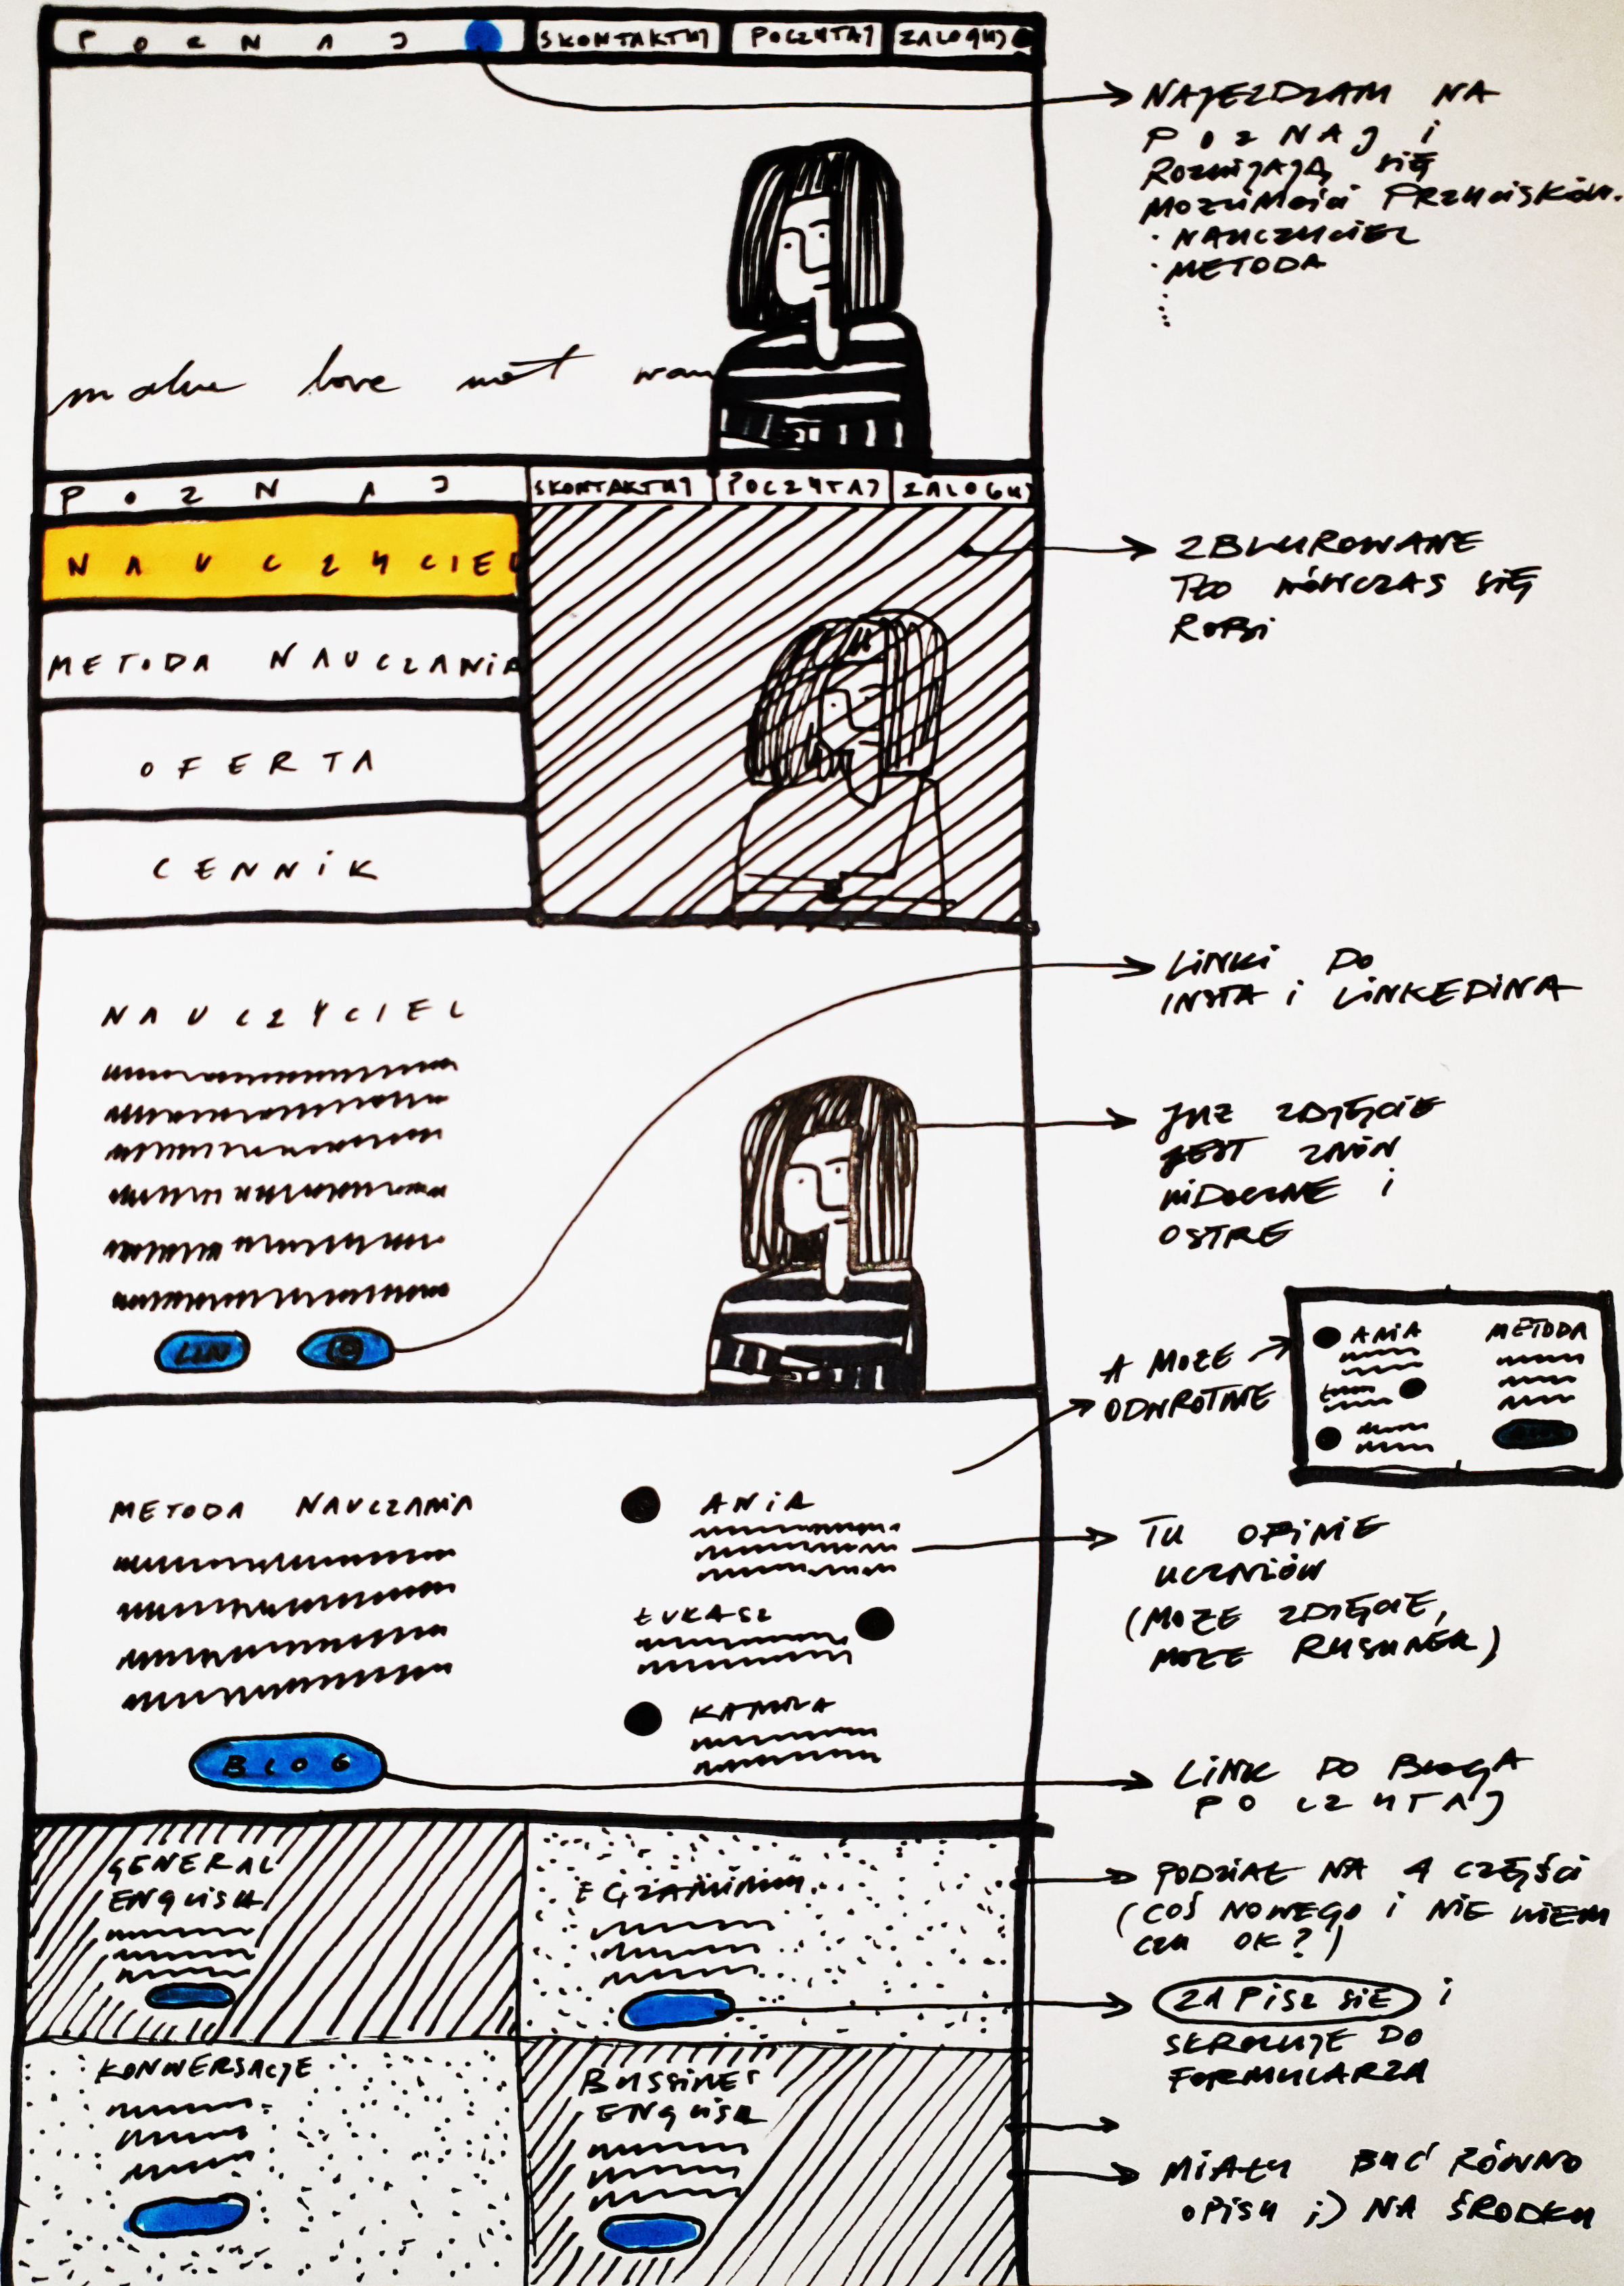 POZNAJ SKONTAKTUJ POCZYTAJ ZALOGUJ
NAJEŻDŻAM NA
POZNAJ i
ROZWIJAJĄ SIĘ
MOŻLIWOŚCI PRZYCISKÓW.
· NAUCZYCIEL
· METODA
make love not war
POZNAJ SKONTAKTUJ POCZYTAJ ZALOGUJ
NAUCZYCIEL
METODA NAUCZANIA
OFERTA
CENNIK
ZBLUROWANE
TŁO WÓWCZAS SIĘ
ROBI
LINKI DO
INSTA i LINKEDINA
NAUCZYCIEL
LIN
JUŻ ZDJĘCIE
JEST ZNÓW
WIDOCZNE i
OSTRE
A MOŻE
ODWROTNIE
ANIA METODA
METODA NAUCZANIA
ANIA
ŁUKASZ
KAMILA
BLOG
TU OPINIE
UCZNIÓW
(MOŻE ZDJĘCIE,
MOŻE RYSUNEK)
LINK DO BLOGA
POCZYTAJ
GENERAL
ENGLISH
EGZAMINY
KONWERSACJE
BUSSINES
ENGLISH
PODZIAŁ NA 4 CZĘŚCI
(COŚ NOWEGO i NIE WIEM
CZY OK?)
ZAPISZ SIĘ i
SKROLUJE DO
FORMULARZA
MIAŁY BYĆ RÓWNO
OPISY ;) NA ŚRODKU